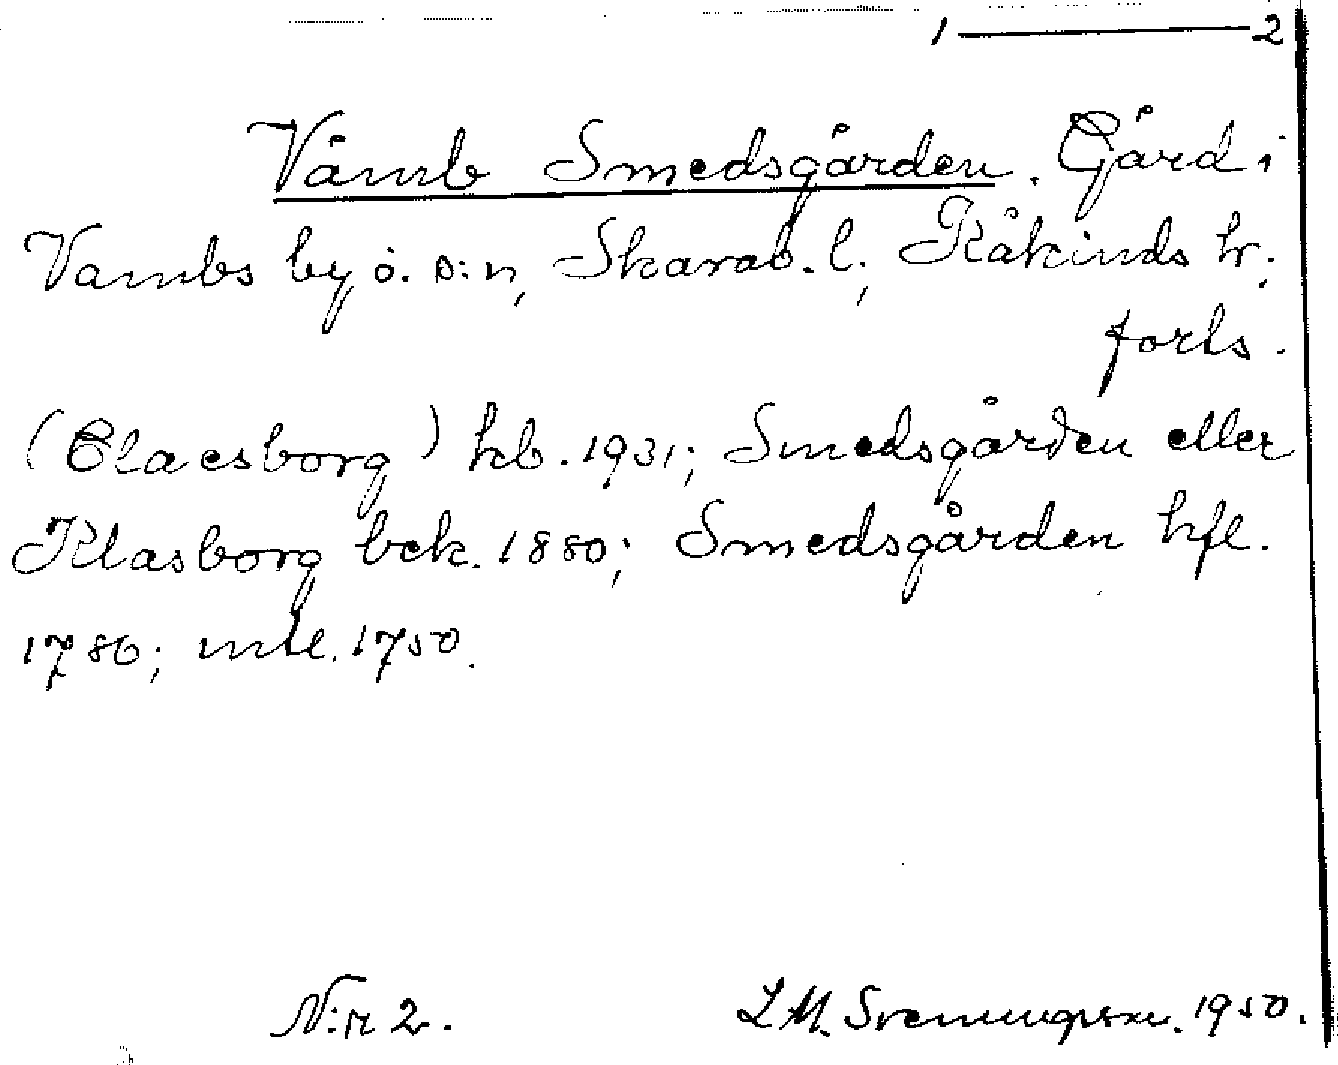 1 — 2
Våmb Smedsgården. Gård i
Vambs by o. s:n, Skarab. l., Kåkinds hr.
forts.
(Claesborg) kb. 1931; Smedsgården eller
Klasborg bek. 1880; Smedsgården hfl.
1786; mtl. 1750.
N:r 2.
L.M. Svenungsson. 1950.